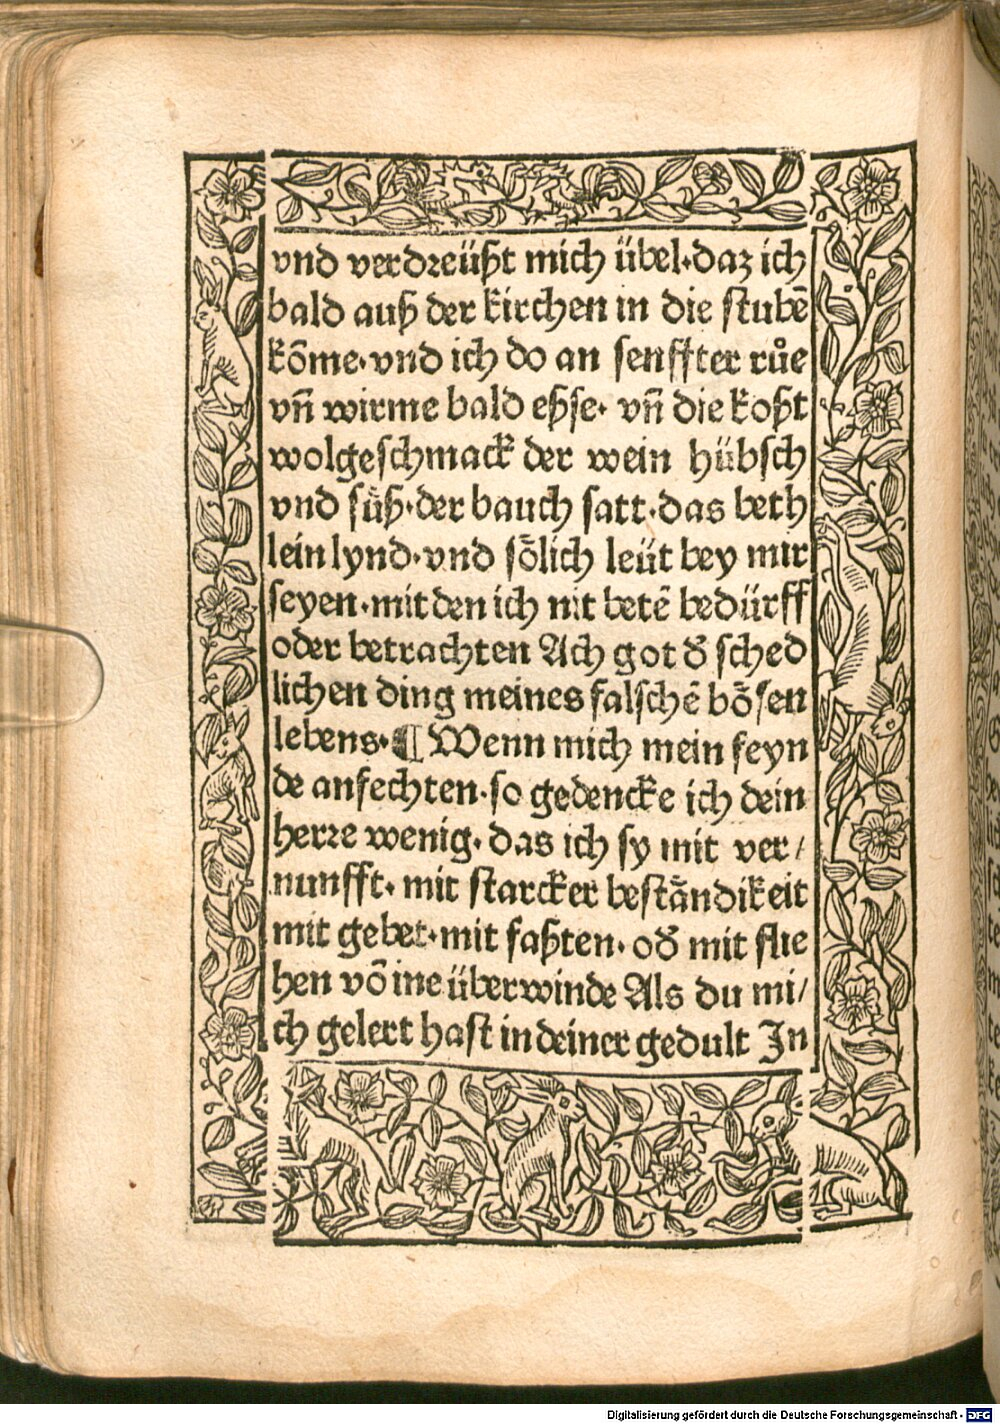 vnd verdreüßt mich übel·daz ich
bald auß der kirchen in die stubē
kōme·vnd ich do an senffter růe
vn̄ wirme bald eßse· vn̄ die koßt
wolgeschmack der wein hübsch
vnd süß·der bauch satt·das beth
lein lynd·vnd sōlich leüt bey mir
seyen·mit den ich nit betē bedürff
oder betrachten Ach got đ sched
lichen ding meines falschē bösen
lebens·¶ Wenn mich mein feyn
de anfechten·so gedencke ich dein
herre wenig· das ich sy mit ver/
nunfft· mit starcker beständikeit
mit gebet·mit faßten· ođ mit flie
hen vō ine überwinde Als du mi/
ch gelert hast in deiner gedult In
Digitalisierung gefördert durch die Deutsche Forschungsgemeinschaft - DFG